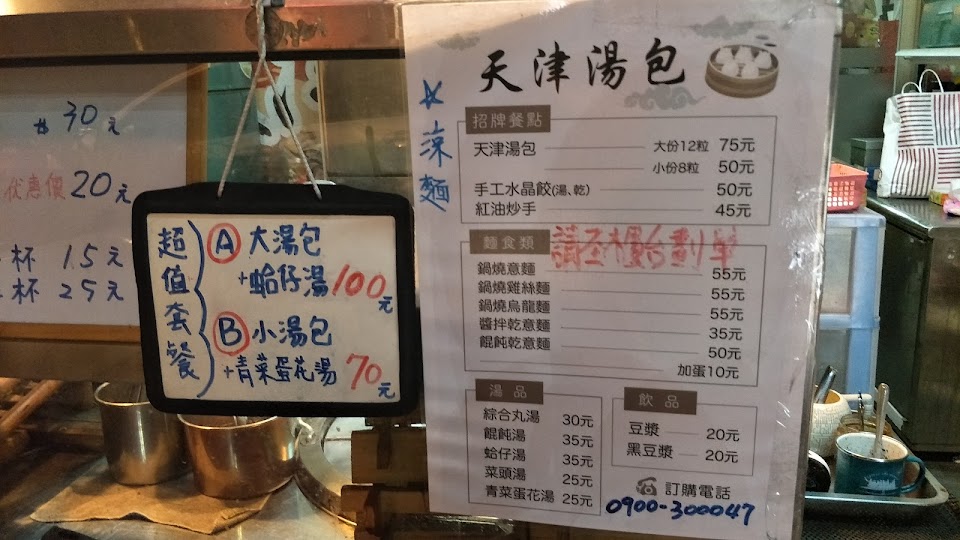 $30元
优惠價20元
杯 15元
杯 25元
超值套餐
Ⓐ大湯包
+蛤仔湯100元
Ⓑ小湯包
+青菜蛋花湯70元
☆涼麵
天津湯包
招牌餐點
天津湯包 大份12粒 75元
小份8粒 50元
手工水晶餃(湯、乾) 50元
紅油炒手 45元
麵食類 請至櫃台劃單
鍋燒意麵 55元
鍋燒雞絲麵 55元
鍋燒烏龍麵 55元
醬拌乾意麵 35元
餛飩乾意麵 50元
加蛋10元
湯品
綜合丸湯 30元
餛飩湯 35元
蛤仔湯 35元
菜頭湯 25元
青菜蛋花湯 25元
飲品
豆漿 20元
黑豆漿 20元
訂購電話
0900-300047